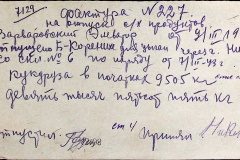 7129 Фактура № 227.
на отпуск с/х продуктов
Варваровский Элеватор 9/III 19
отпущено Б-Корених для
со скл. № 6 по наряду от 7/III-43 г.
Кукуруза в початках 9505 кг
девять тысяч пятьсот пять кг
отпустил. Принял